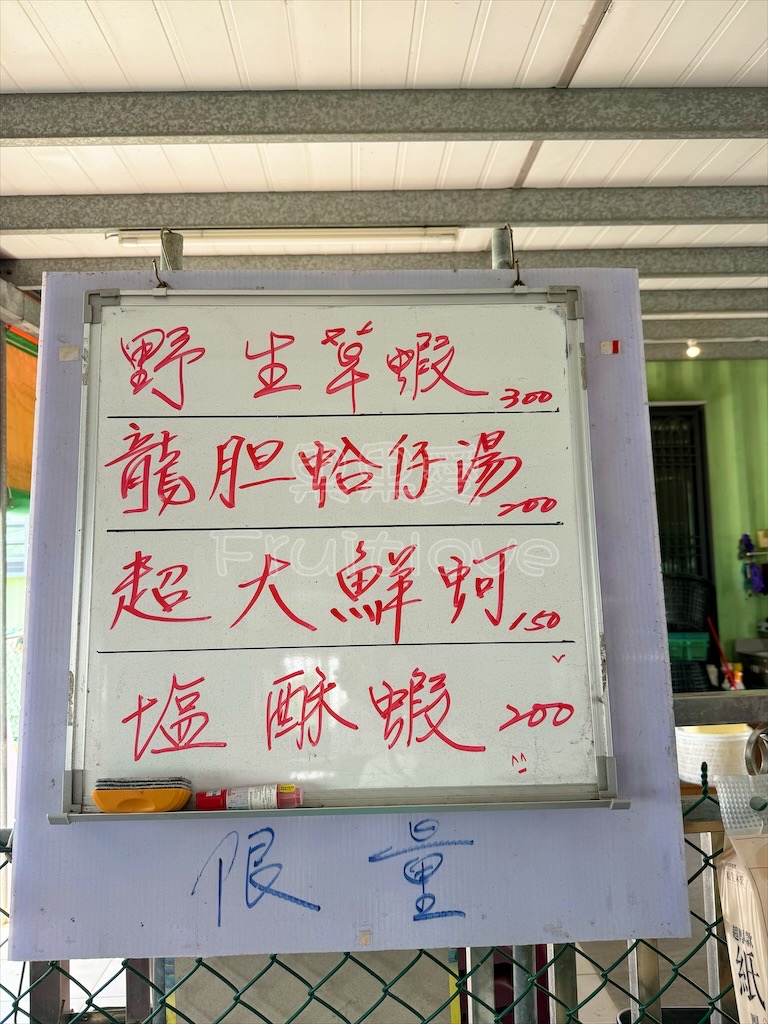 野生草蝦 300
龍胆蛤仔湯 200
超大鮮蚵 150
塩酥蝦 200
限量
果果愛
Fruitlove
紙